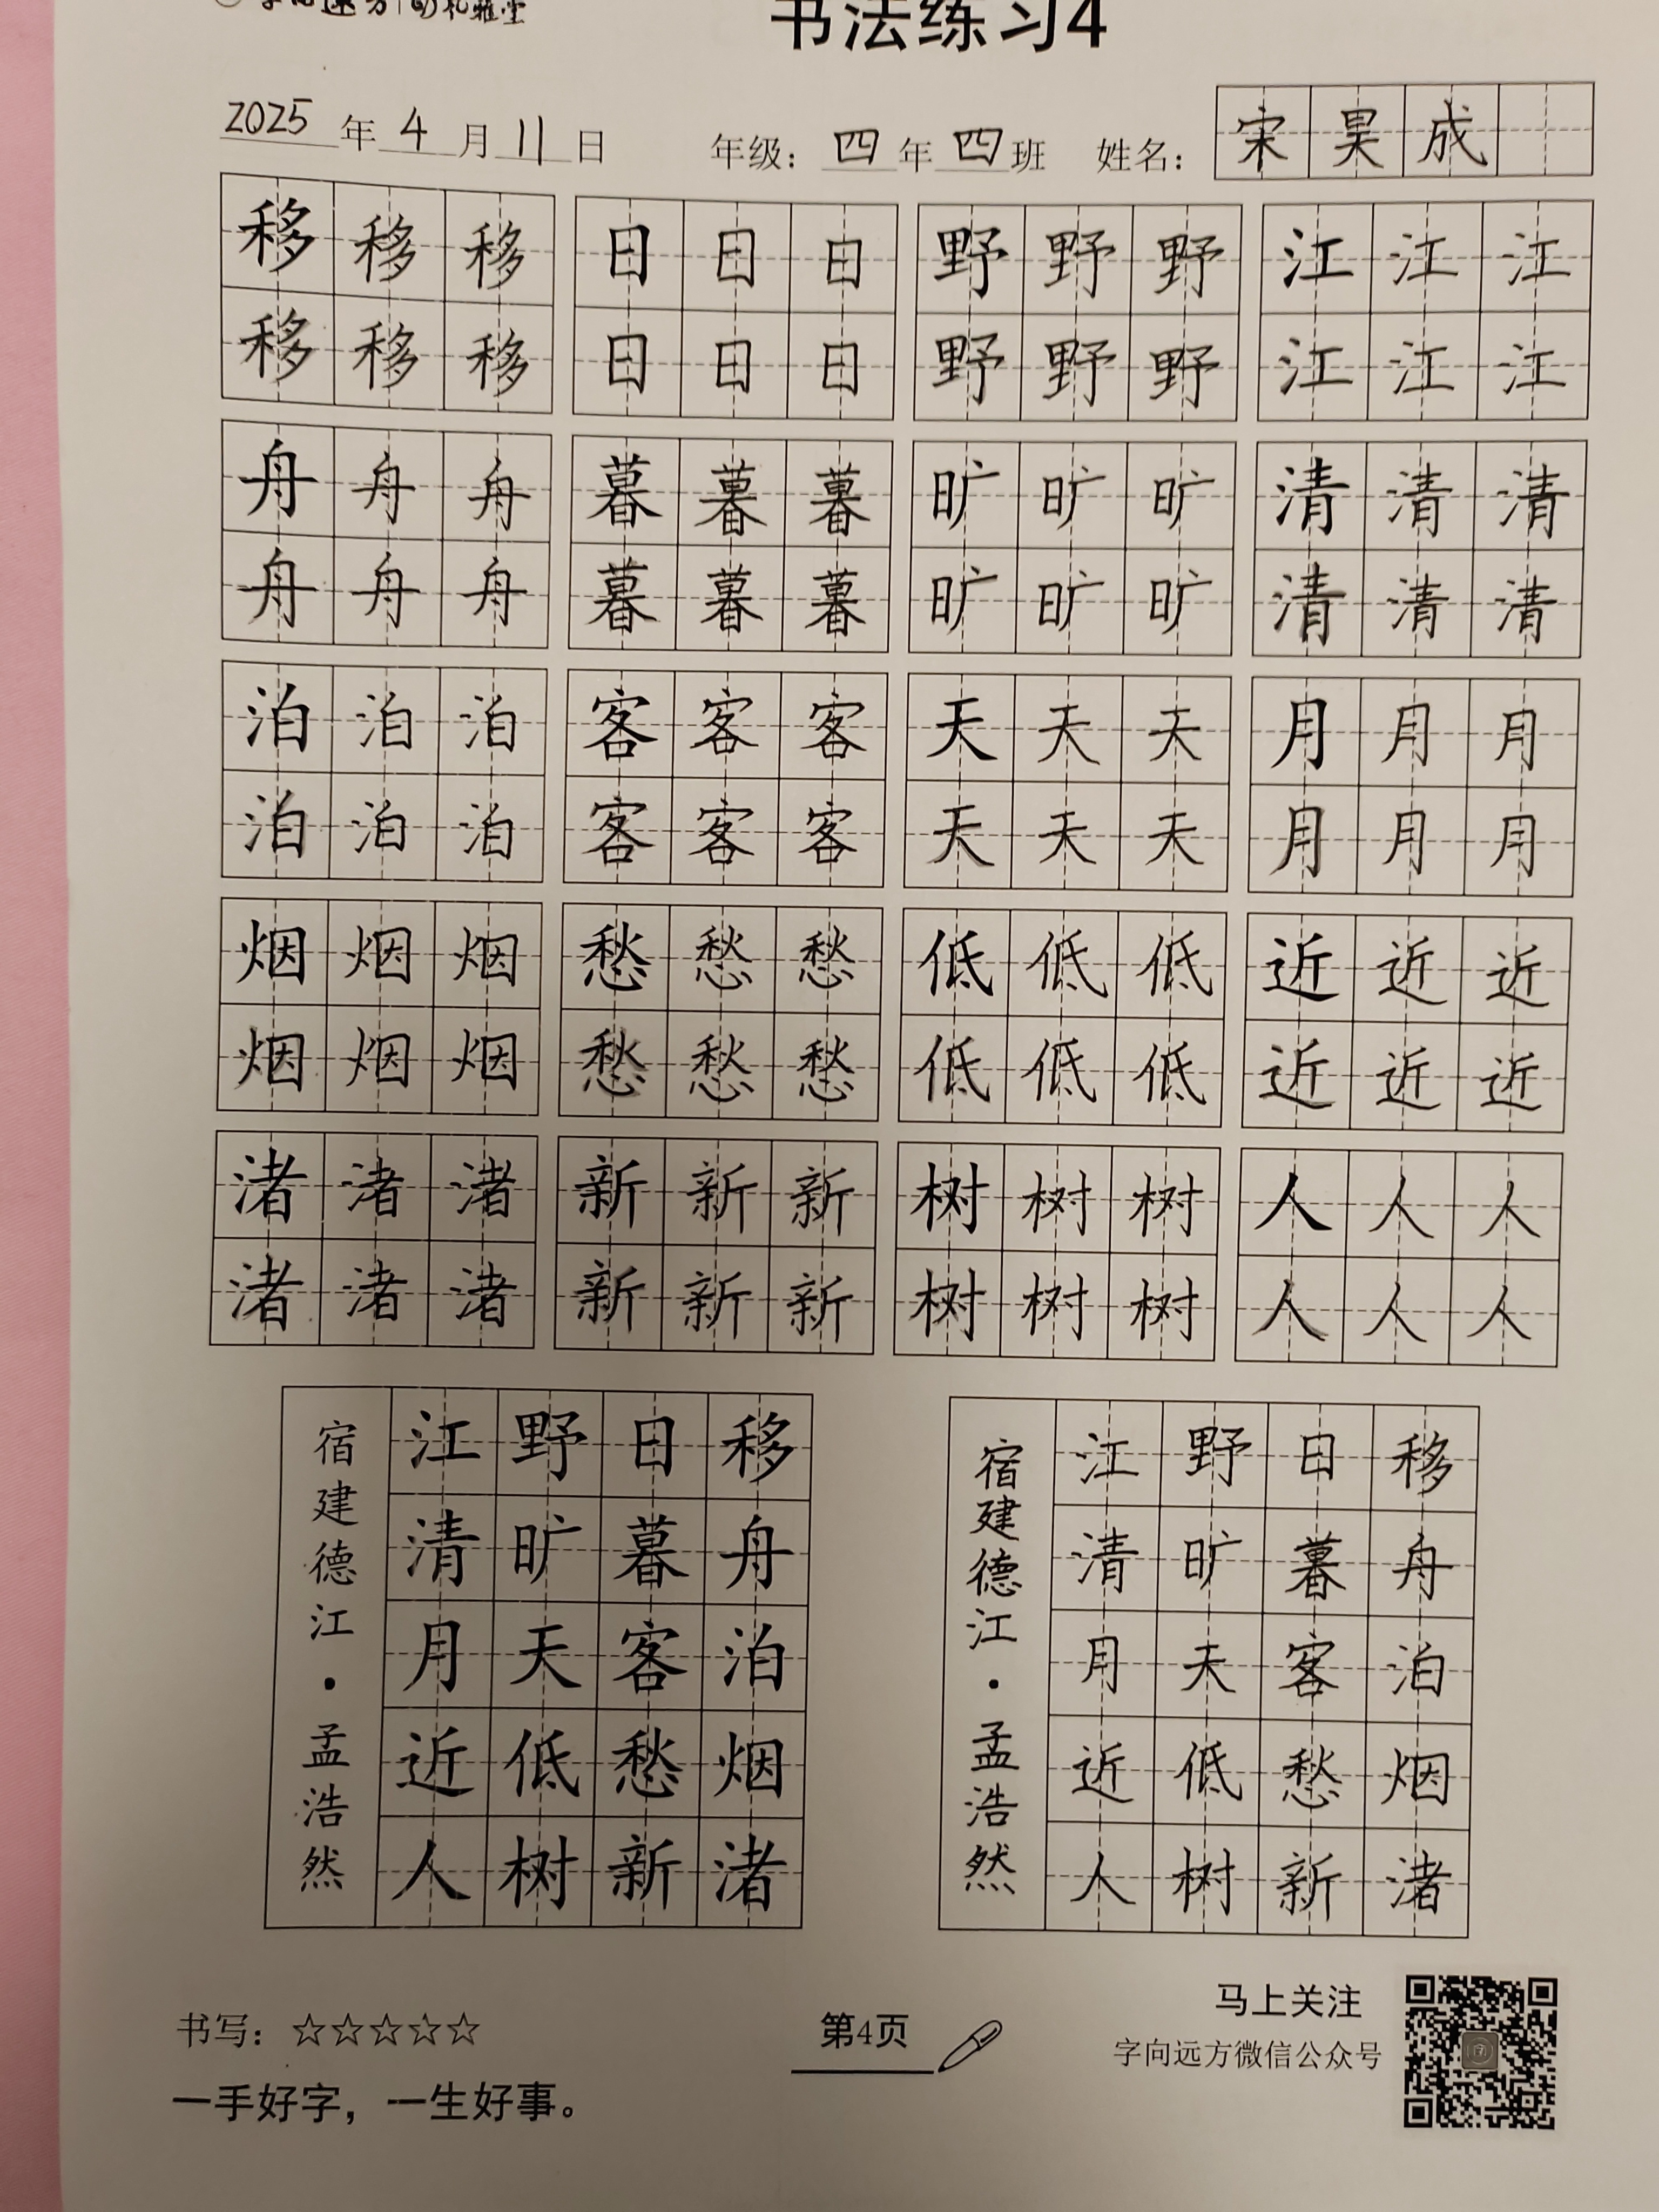 书法练习4
2025年4月11日 年级：四年四班 姓名：宋昊成
移移移 日日日 野野野 江江江
移移移 日日日 野野野 江江江
舟舟舟 暮暮暮 旷旷旷 清清清
舟舟舟 暮暮暮 旷旷旷 清清清
泊泊泊 客客客 天天天 月月月
泊泊泊 客客客 天天天 月月月
烟烟烟 愁愁愁 低低低 近近近
烟烟烟 愁愁愁 低低低 近近近
渚渚渚 新新新 树树树 人人人
渚渚渚 新新新 树树树 人人人
移舟泊烟渚
日暮客愁新
野旷天低树
江清月近人
宿建德江·孟浩然
移舟泊烟渚
日暮客愁新
野旷天低树
江清月近人
宿建德江·孟浩然
书写：☆☆☆☆☆
一手好字，一生好事。
第4页
马上关注
字向远方微信公众号